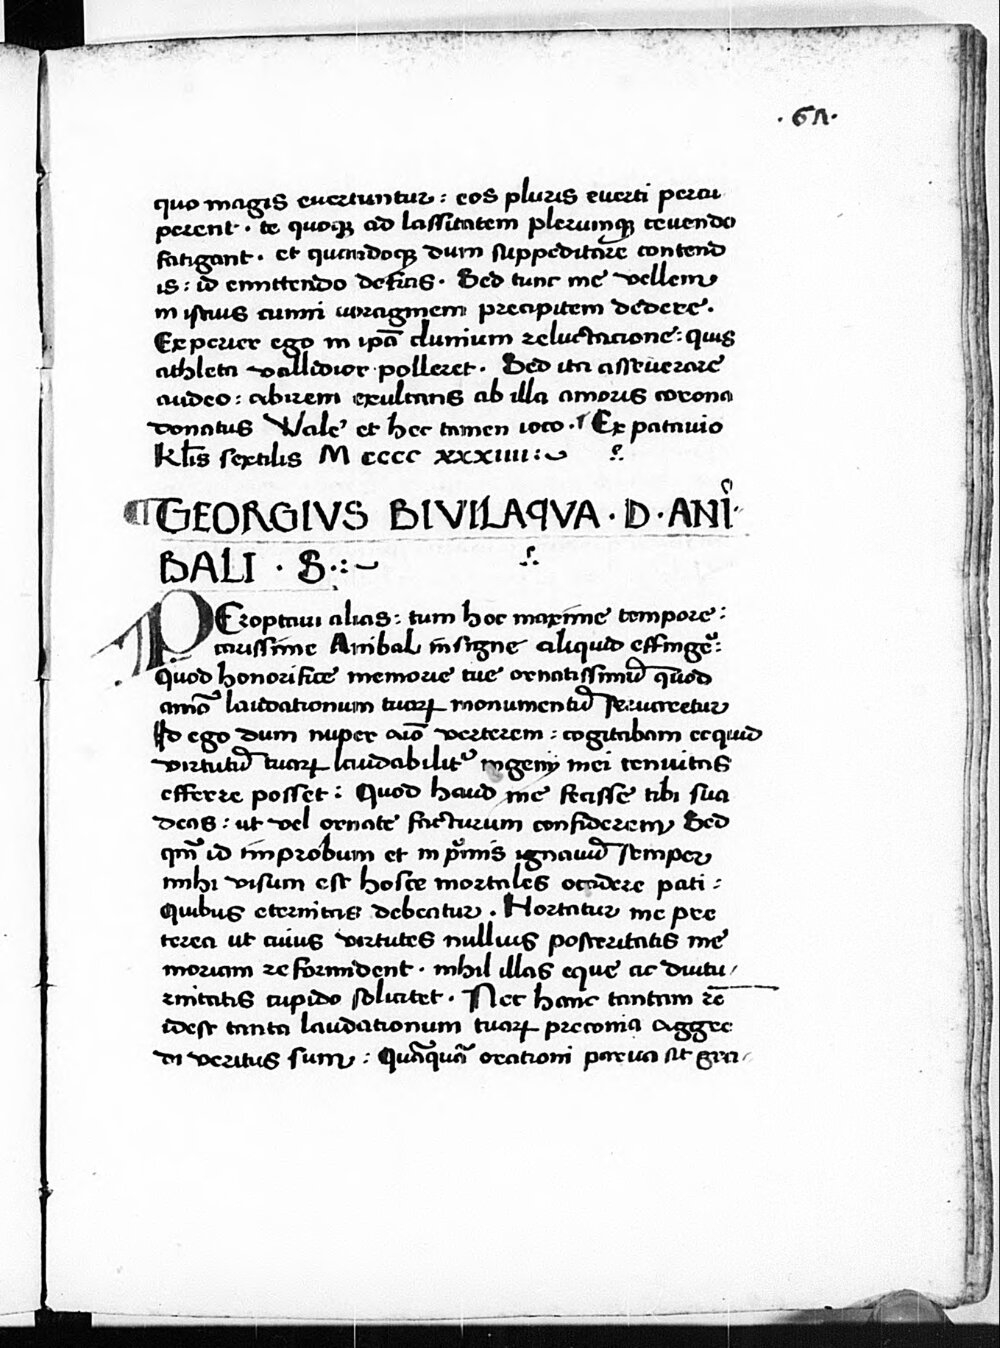 .61.
quo magis euertuntur : eos pluris euerti percu
perent . te quoqȝ ad lassitatem plerumqȝ ceuendo
fatigant . et quandoqȝ dum suppeditare contend
is : id emittendo defitias . Sed tunc me vellem
in istius cunni uoraginem precipitem dedere .
Experier ego in ip̄a clunium reluctacione : quis
athleta vallidior polleret . Sed ita asseuerare
audeo : abirem exultans ab illa amoris corona
donatus Vale et hec tamen ioco . Ex patauio
Kl̄is sextilis M cccc xxxiiii :
GEORGIVS BIVILAQVA . D . ANI
BALI . S . :
PERoptaui alias : tum hoc maxime tempore :
carissime Anibal insigne aliquid effinge :
quod honorifice memorie tue ornatissimū quod
laudationum tuaꝝ monumentū seruaretur
Id ego dum nuper aīo verterem : cogitabam ecquid
virtutū tuaꝝ laudabilit ingenij mei tenuitas
efferre posset : Quod haud me fecisse tibi sua
deas : ut vel ornate facturum confiderem Sed
qm̄ id improbum et in pīmis ignauū semper
mihi visum est hosce mortales occidere pati :
Quibus eternitas debeatur . Hortatur me pre
terea ut cuius virtutes nullius posteritatis me
moriam reformident . nihil illas eque ac diutu
rnitatis cupido solicitet . Nec hanc tantam rē
idest tanta laudationum tuaꝝ preconia aggre
di veritus sum : Quāquā orationi parua sit gra